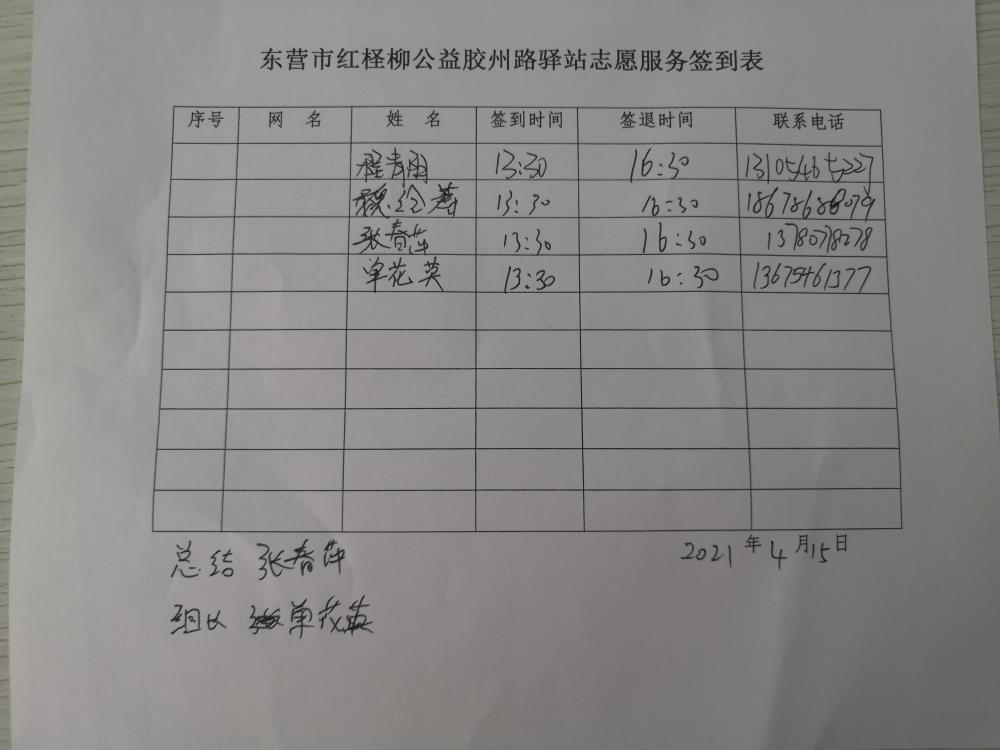 东营市红柽柳公益胶州路驿站志愿服务签到表
序号 网 名 姓 名 签到时间 签退时间 联系电话
程青雨 13:30 16:30
13:30 16:30
张春萍 13:30 16:30 1378078278
单花英 13:30 16:30 13675461377
总结 张春萍 2021年4月15日
组长 单花英